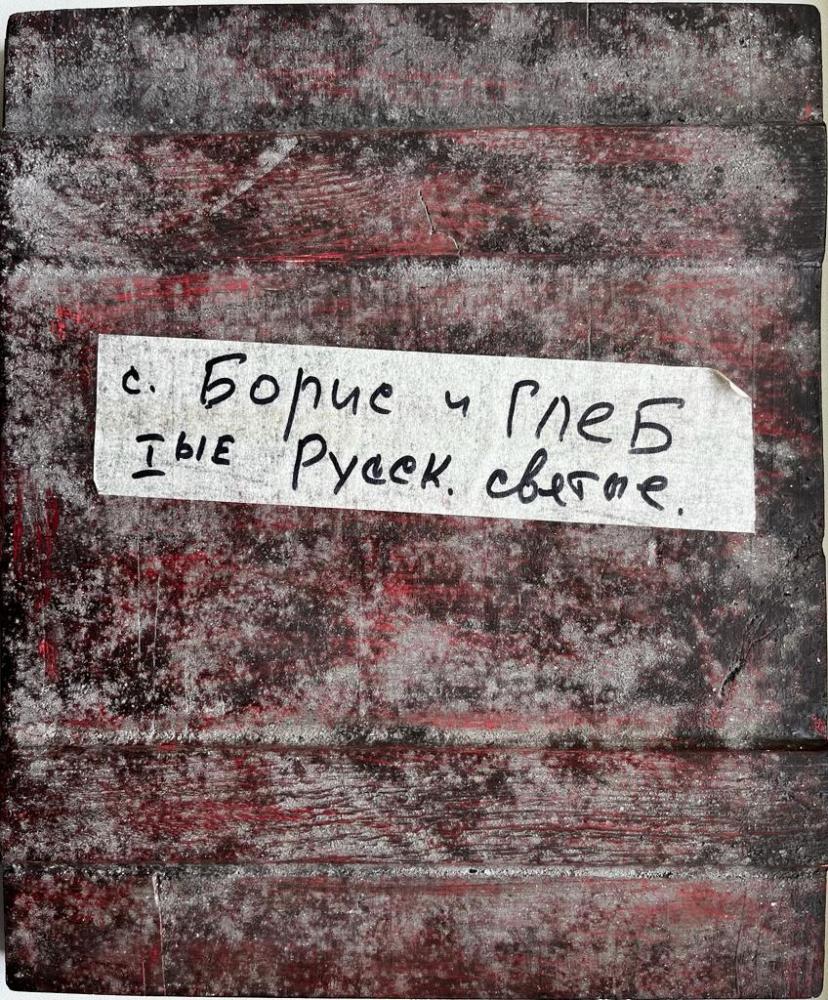 с. Борис и Глеб
Iые Русск. святые.